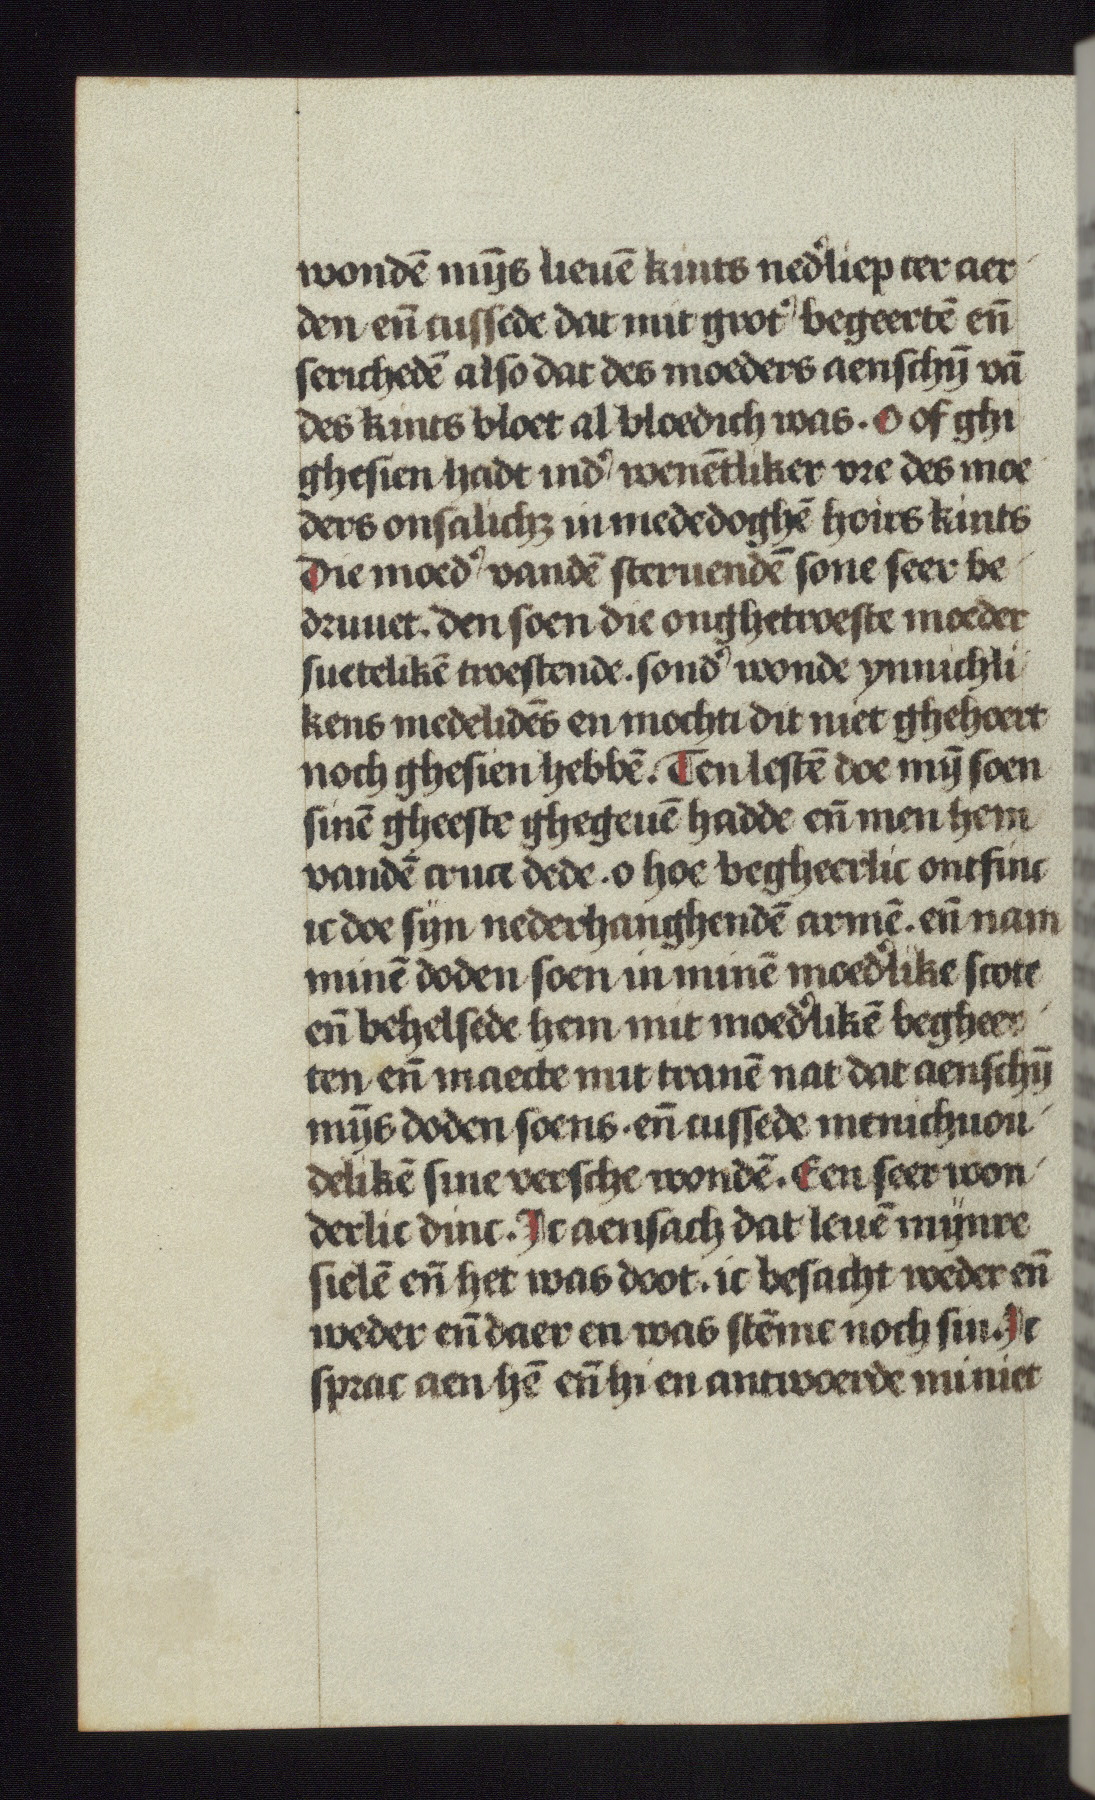 wondē mijs lieuē kints ned'liep ter aer
den en̄ cussede dat mit grot' begeertē en̄
serichedē also dat des moeders aenschȳ vā
des kints bloet al bloedich was. O of ghi
ghesien hadt ind' wenētliker vre des moe
ders onsalichʒ in mededoghē hoirs kints
Die moed' vandē steruendē sone seer be
druuet. den soen die onghetroeste moeder
suetelikē troestende. sond' wonde ynnichli
kens medelidēs en mochti dit niet ghehoert
noch ghesien hebbē. Ten lestē doe mȳ soen
sinē gheeste ghegeuē hadde en̄ men hem
vandē cruce dede. o hoe begheerlic ontfinc
ic doe sijn nederhanghendē armē. en̄ nam
minē doden soen in minē moed'like scote
en̄ behelsede hem mit moed'likē begheer
ten en̄ maecte mit tranē nat dat aenschȳ
mijs doden soens. en̄ cussede menichuou
delikē sine versche wondē. Een seer won
derlic dinc. Ic aensach dat leuē mijnre
sielē en̄ het was doot. ic besacht weder en̄
weder en̄ daer en was stēme noch sin. Ic
sprac aen hē en̄ hi en antwoerde mi niet